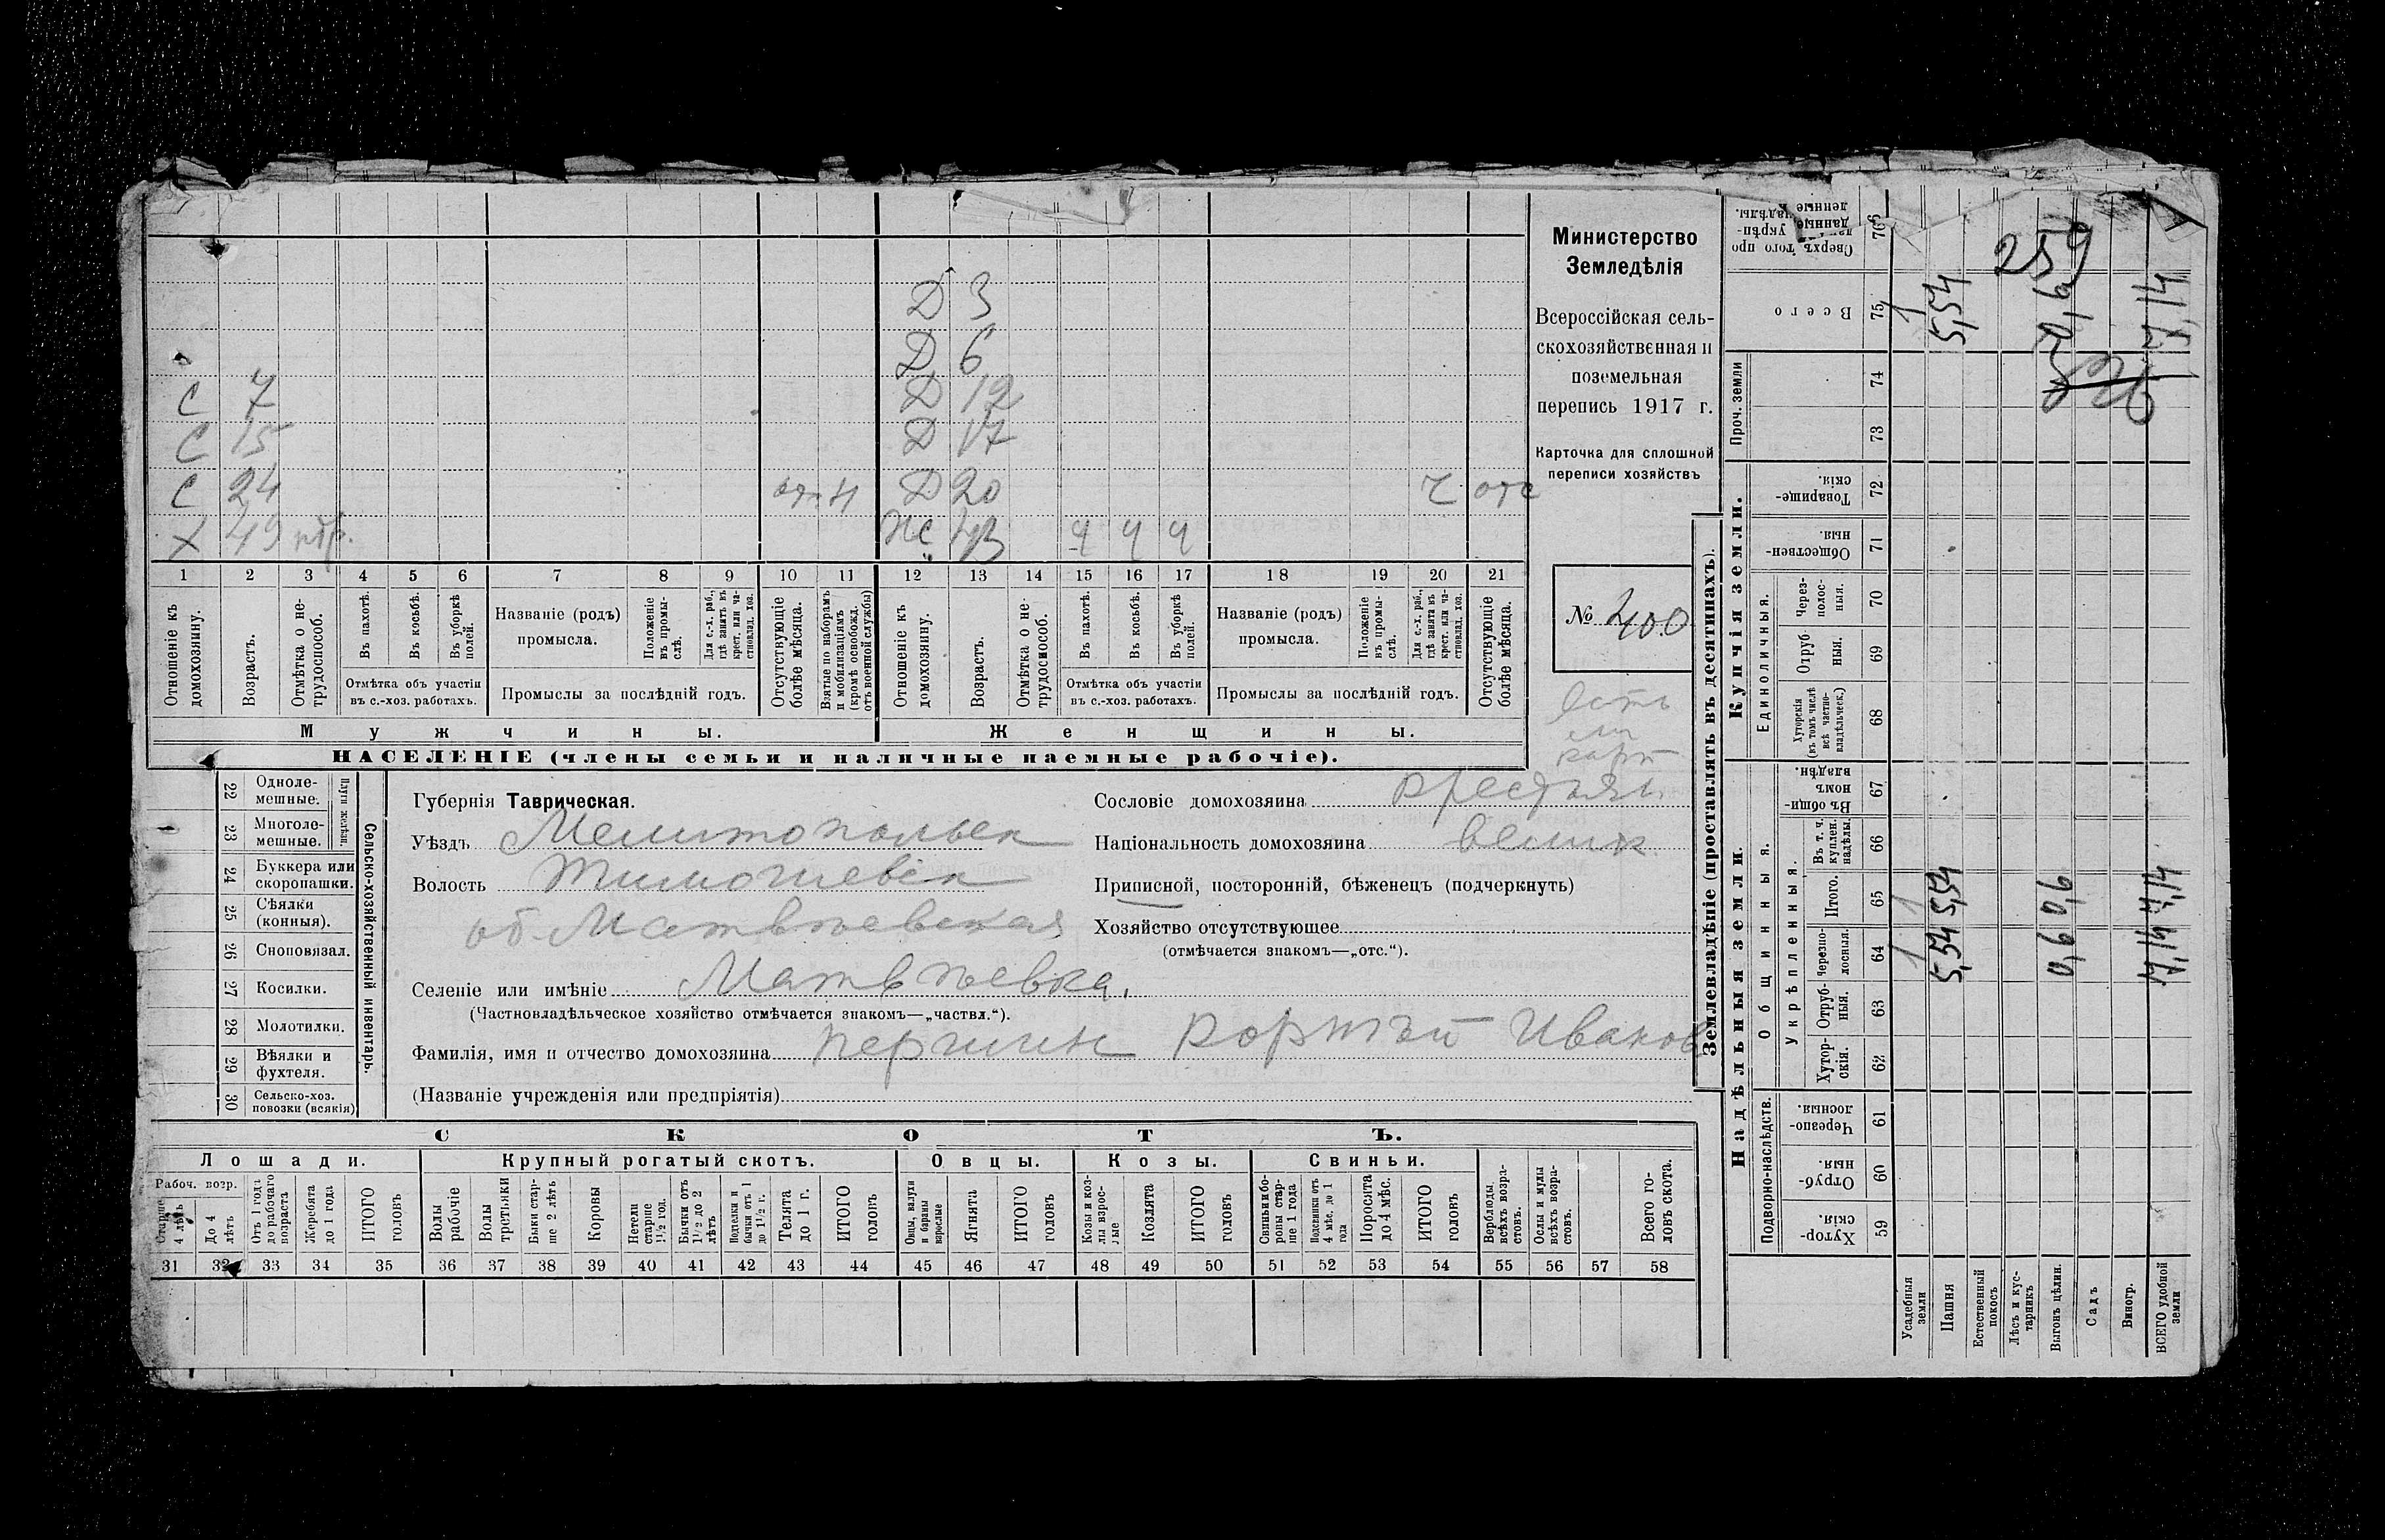 Д 3
Д 6
С 7 Д 12
С 15 Д 17
С 24 Д 20 отс
Х 49 43 ч ч ч
1 2 3 4 5 6 7 8 9 10 11 12 13 14 15 16 17 18 19 20 21
Отношеніе къ домохозяину.
Возрастъ.
Отмѣтка о не-трудоспособ.
Въ пахотѣ.
Въ косьбѣ.
Въ уборкѣ полей.
Отмѣтка объ участіи въ с.-хоз. работахъ.
Названіе (родъ) промысла.
Положеніе въ промы-слѣ.
Для с.-х. раб., гдѣ занятъ въ крест. или ча-стновлад. хоз.
Промыслы за послѣдній годъ.
Отсутствующіе болѣе мѣсяца.
Взятые по наборамъ и мобилизаціямъ (кромѣ освобожд. отъ военной службы)
Отношеніе къ домохозяину.
Возрастъ.
Отмѣтка о не-трудоспособ.
Въ пахотѣ.
Въ косьбѣ.
Въ уборкѣ полей.
Отмѣтка объ участіи въ с.-хоз. работахъ.
Названіе (родъ) промысла.
Положеніе въ промы-слѣ.
Для с.-х. раб., гдѣ занятъ въ крест. или ча-стновлад. хоз.
Промыслы за послѣдній годъ.
Отсутствующіе болѣе мѣсяца.
Мужчины.
Женщины.
НАСЕЛЕНІЕ (члены семьи и наличные наемные рабочіе).
Министерство
Земледѣлія
Всероссійская сель-
скохозяйственная и
поземельная
перепись 1917 г.
Карточка для сплошной
переписи хозяйствъ
№ 400
Есть
22 Одноле-мешные.
23 Многоле-мешные.
Плуги желѣзн.
24 Буккера или скоропашки.
25 Сѣялки (конныя).
26 Сноповязал.
27 Косилки.
28 Молотилки.
29 Вѣялки и фухтеля.
30 Сельско-хоз. повозки (всякія)
Сельско-хозяйственный инвентарь.
Губернія Таврическая.
Уѣздъ Мелитопольск
Волость Тимошевск
об. Матвѣевская
Селеніе или имѣніе Матвѣевка.
(Частновладѣльческое хозяйство отмѣчается знакомъ—„частвл.“).
Фамилія, имя и отчество домохозяина Першин Иванов
(Названіе учрежденія или предпріятія)
Сословіе домохозяина крестьян.
Національность домохозяина велик.
Приписной, посторонній, бѣженецъ (подчеркнуть)
Хозяйство отсутствующее
(отмѣчается знакомъ—„отс.“).
СКОТЪ.
Лошади.
Крупный рогатый скотъ.
Овцы.
Козы.
Свиньи.
Рабоч. возр.
Старше 4 лѣтъ
До 4 лѣтъ
Отъ 1 года до рабочаго возраста
Жеребята до 1 года
ИТОГО головъ
Волы рабочіе
Волы третьяки
Быки стар-ше 2 лѣтъ
Коровы
Нетели старше 1½ год.
Бычки отъ 1½ до 2 лѣтъ
бычки отъ 1 до 1½ г.
Телята до 1 г.
ИТОГО головъ
Овцы, валухи и бараны взрослые
Ягнята
ИТОГО головъ
Козы и коз-лы взрос-лые
Козлята
ИТОГО головъ
Свиньи и бо-ровы стар-ше 1 года
Подсвинки отъ 4 мѣс. до 1 года
Поросята до 4 мѣс.
ИТОГО головъ
Верблюды всѣхъ возра-стовъ.
Ослы и мулы всѣхъ возра-стовъ.
Всего го-ловъ скота.
31 32 33 34 35 36 37 38 39 40 41 42 43 44 45 46 47 48 49 50 51 52 53 54 55 56 57 58
Землевладѣніе (проставлять въ десятинахъ).
Надѣльныя земли.
Купчія земли.
Подворно-наслѣдств.
Общинныя.
Укрѣпленныя.
Единоличныя.
Проч. земли
Хутор-скія. 59
Отруб-ныя. 60
Черезпо-лосныя. 61
Хутор-скія. 62
Отруб-ныя. 63
Черезпо-лосныя. 64
Итого. 65
Въ т. ч. куплен. надѣлы. 66
Въ общи-номъ владѣн. 67
Хуторскія (въ томъ числѣ всѣ частно-владѣльческ.) 68
Отруб-ныя. 69
Через-полос-ныя. 70
Обществен-ныя. 71
Товарище-скія. 72
73
74
Всего 75
76
Усадебныя земли 1 1 1
Пашня 5,54 5,54 5,54
Естественный покосъ
Лѣсъ и кус-тарникъ
Выгонъ цѣлин. 0,6 0,6 0,6
Садъ
Виногр.
ВСЕГО удобной земли 7,14 7,14 7,14
259